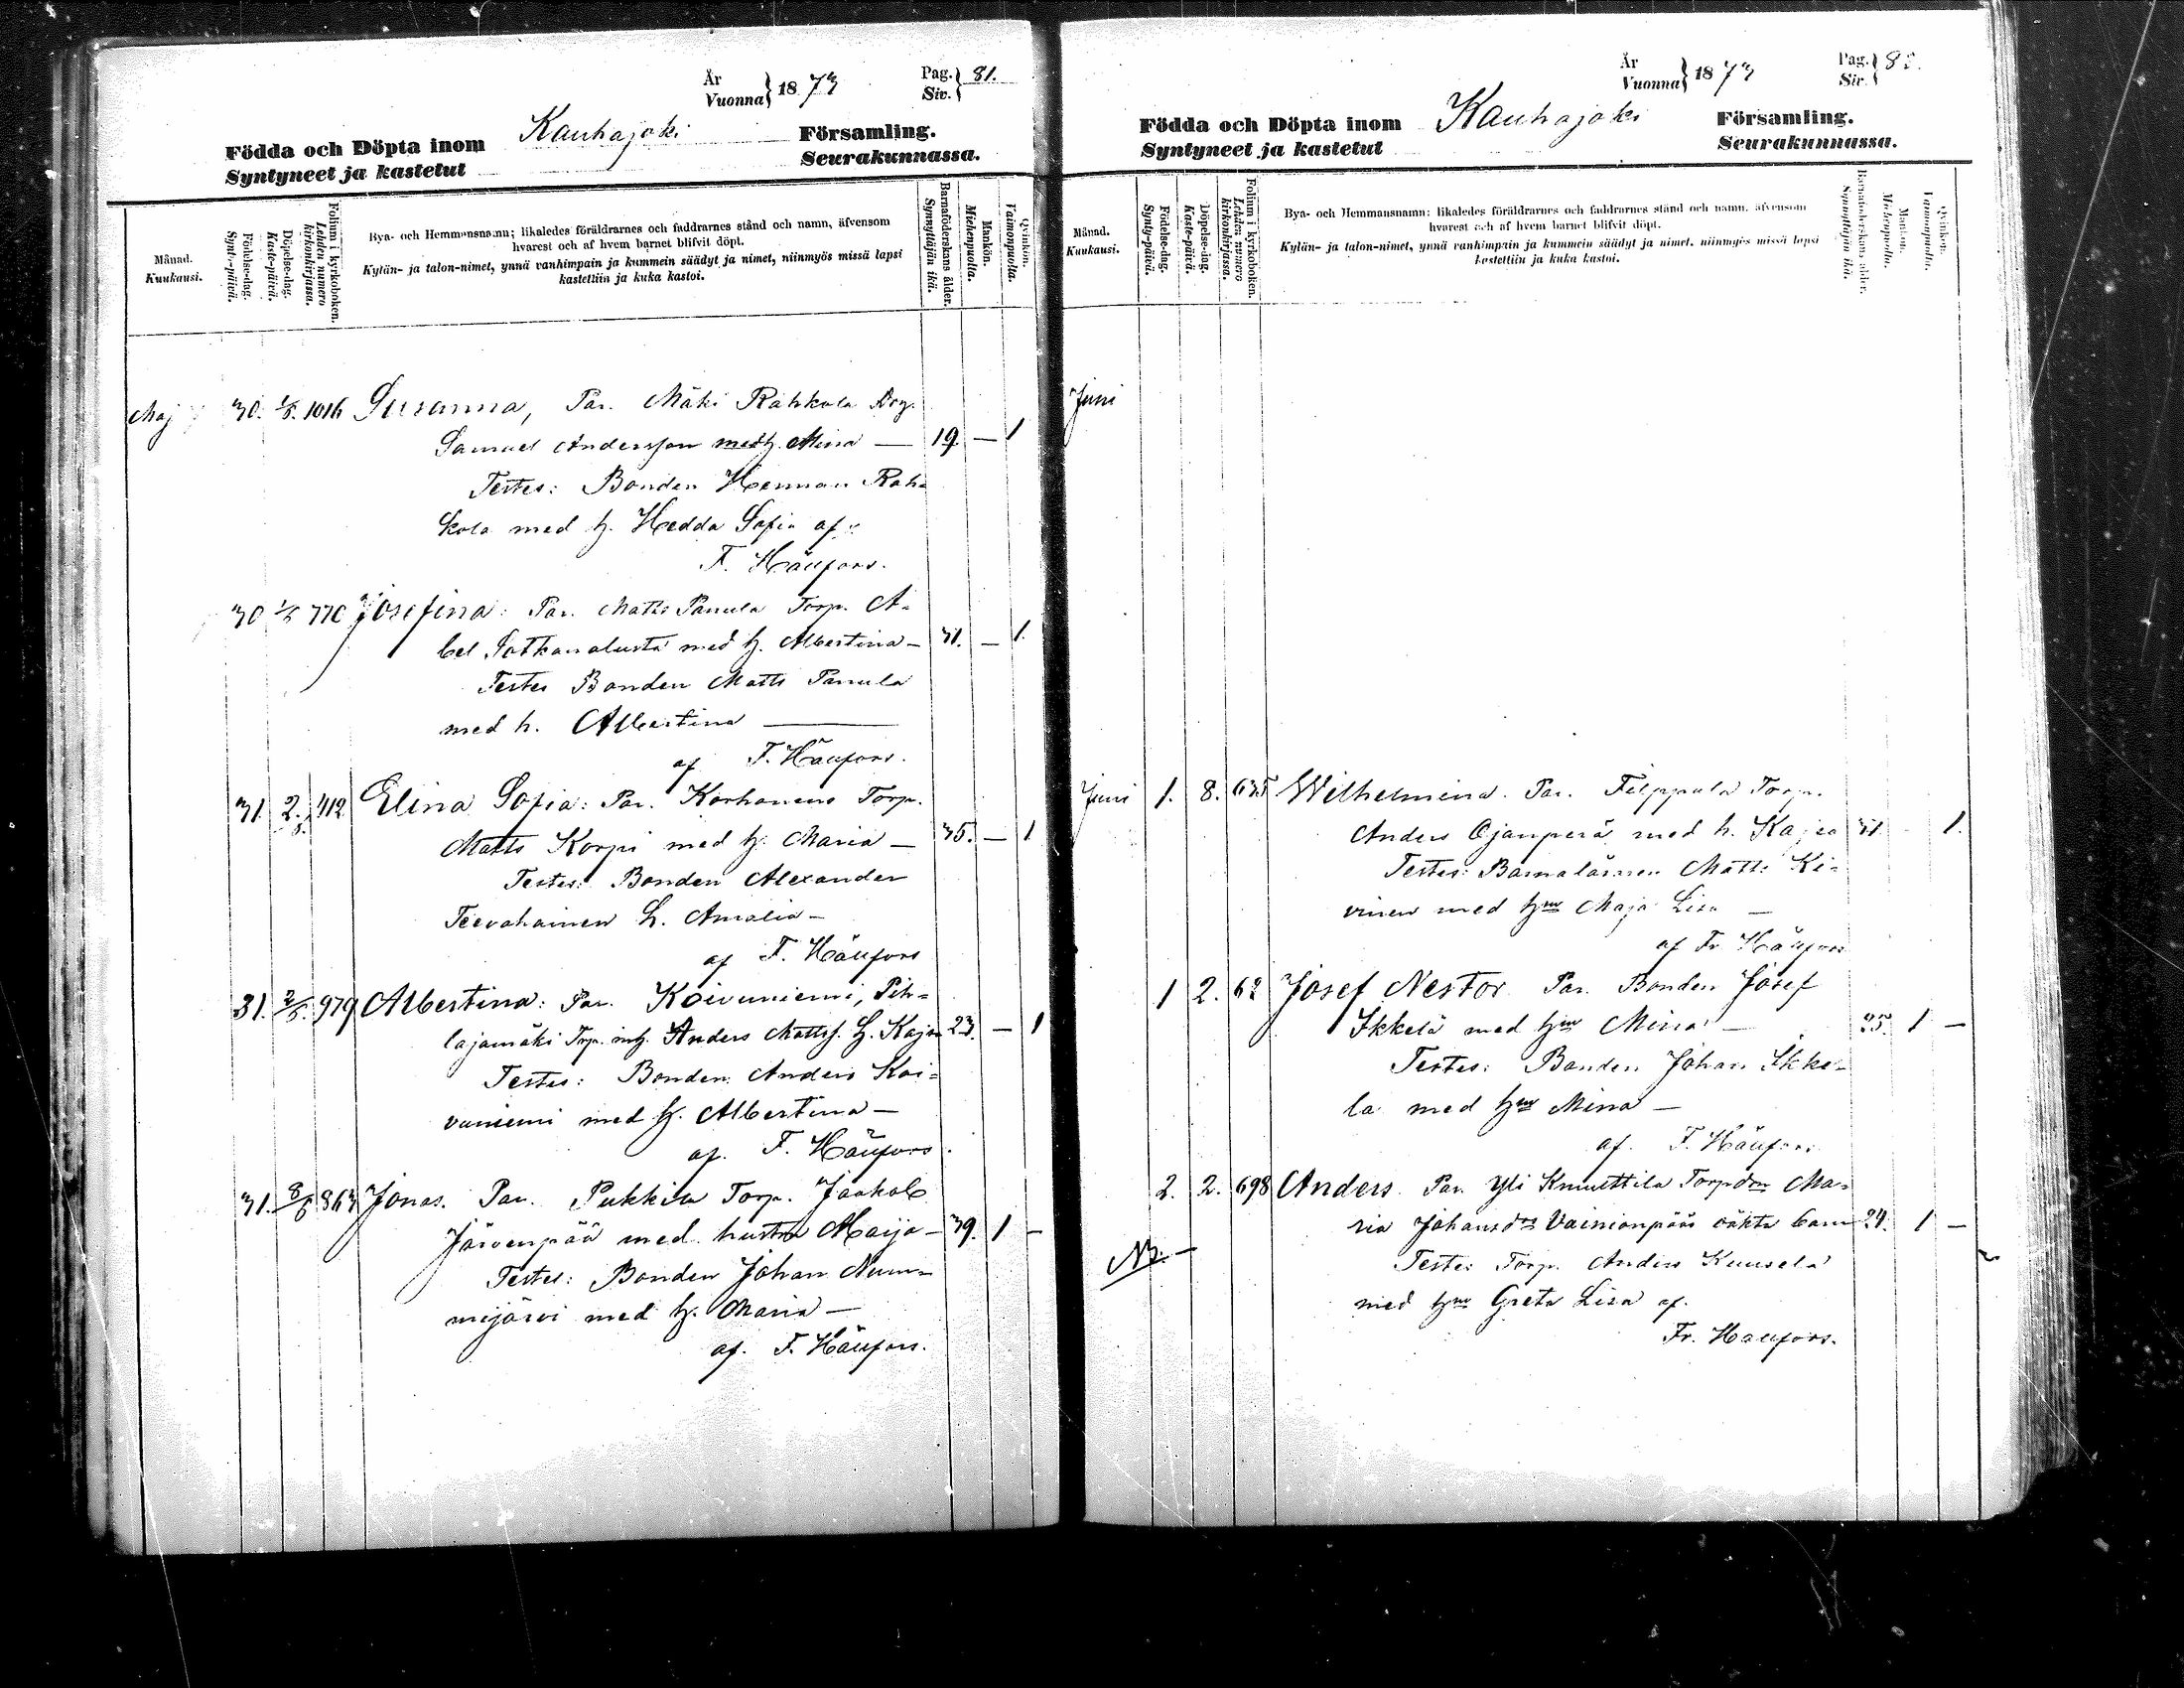 År
Vuonna } 1873
Pag.
Siv. } 81.
Födda och Döpta inom Kauhajoki Församling.
Syntyneet ja kastetut Seurakunnassa.
Månad.
Kuukausi.
Födelse-dag.
Synty-päivä.
Döpelse-dag.
Kaste-päivä.
Folium i kyrkoboken.
Lehden numero kirkonkirjassa.
Bya- och Hemmansnamn; likaledes föräldrarnes och faddrarnes stånd och namn, äfvensom
hvarest och af hvem barnet blifvit döpt.
Kylän- ja talon-nimet, ynnä vanhimpain ja kummein säädyt ja nimet, niinmyös missä lapsi
kastettiin ja kuka kastoi.
Barnaföderskans ålder.
Synnyttäjän ikä.
Mankön.
Miehenpuolta.
Qvinkön.
Vaimonpuolta.
Maj 30. 1016 Susanna, Par. Mäki Rahkola
Samuel Andersson med h. Mina — 19 — 1
Testes: Bonden Herman Rah-
kola med h. Hedda Sofia af
F. Häufors.
30 770 Josefina: Par. Matts Panula Torp. A-
bel med h. Albertina — 31. — 1.
Testes Bonden Matts Panula
med h. Albertina —
af F. Häufors.
31. 2. 412 Elina Sofia: Par. Korhonens Torp.
Matts Korpi med h. Maria — 35. — 1
Testes: Bonden Alexander
Teevahainen h. Amalia —
af F. Häufors
31. 979 Albertina: Par. Koivuniemi, Pih-
lajamäki Torp. Anders Mattss. h. Kajsa 23. — 1
Testes: Bonden Anders Koi-
vuniemi med h. Albertina —
af. F. Häufors.
31. 8/6 863 Jonas. Par. Pukkila Torp. Jaakob
Järvenpää med hustru Maija — 39. 1 —
Testes: Bonden Johan Num-
mijärvi med h. Maria —
af. F. Häufors.
År
Vuonna } 1873
Pag.
Siv. } 82.
Födda och Döpta inom Kauhajoki Församling.
Syntyneet ja kastetut Seurakunnassa.
Månad.
Kuukausi.
Födelse-dag.
Synty-päivä.
Döpelse-dag.
Kaste-päivä.
Folium i kyrkoboken.
Lehden numero kirkonkirjassa.
Bya- och Hemmansnamn; likaledes föräldrarnes och faddrarnes stånd och namn, äfvensom
hvarest och af hvem barnet blifvit döpt.
Kylän- ja talon-nimet, ynnä vanhimpain ja kummein säädyt ja nimet, niinmyös missä lapsi
kastettiin ja kuka kastoi.
Barnaföderskans ålder.
Synnyttäjän ikä.
Mankön.
Miehenpuolta.
Qvinkön.
Vaimonpuolta.
Juni
Juni 1. 8. 635 Wilhelmina. Par. Filppula Torp.
Anders Ojanperä med h. Kajsa 31 1.
Testes: Barnaläraren Matts Ki-
vinen med hru Maja Lisa —
af Fr Häufors
1 2. 62 Josef Nestor Par. Bonden Josef
Ikkelä med hru Mina — 25. 1 —
Testes: Bonden Johan Ikke-
la med hru Mina —
af. F. Häufors
2. 2. 698 Anders. Par. Yli Knuuttila Torpdrn Ma-
ria Johansdrs Vainionpääs oäkta barn 24. 1 —
Testes Torp. Anders Kuusela
med hru Greta Lisa af.
Fr. Haufors.